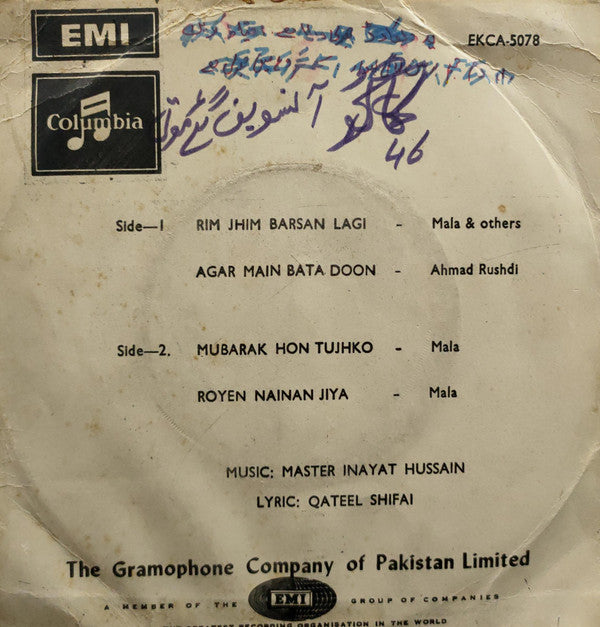 EMI
EKCA-5078
Columbia
46
Side—1 RIM JHIM BARSAN LAGI - Mala & others
AGAR MAIN BATA DOON - Ahmad Rushdi
Side—2. MUBARAK HON TUJHKO - Mala
ROYEN NAINAN JIYA - Mala
MUSIC: MASTER INAYAT HUSSAIN
LYRIC: QATEEL SHIFAI
The Gramophone Company of Pakistan Limited
A MEMBER OF THE EMI GROUP OF COMPANIES
GREATEST RECORDING ORGANISATION IN THE WORLD